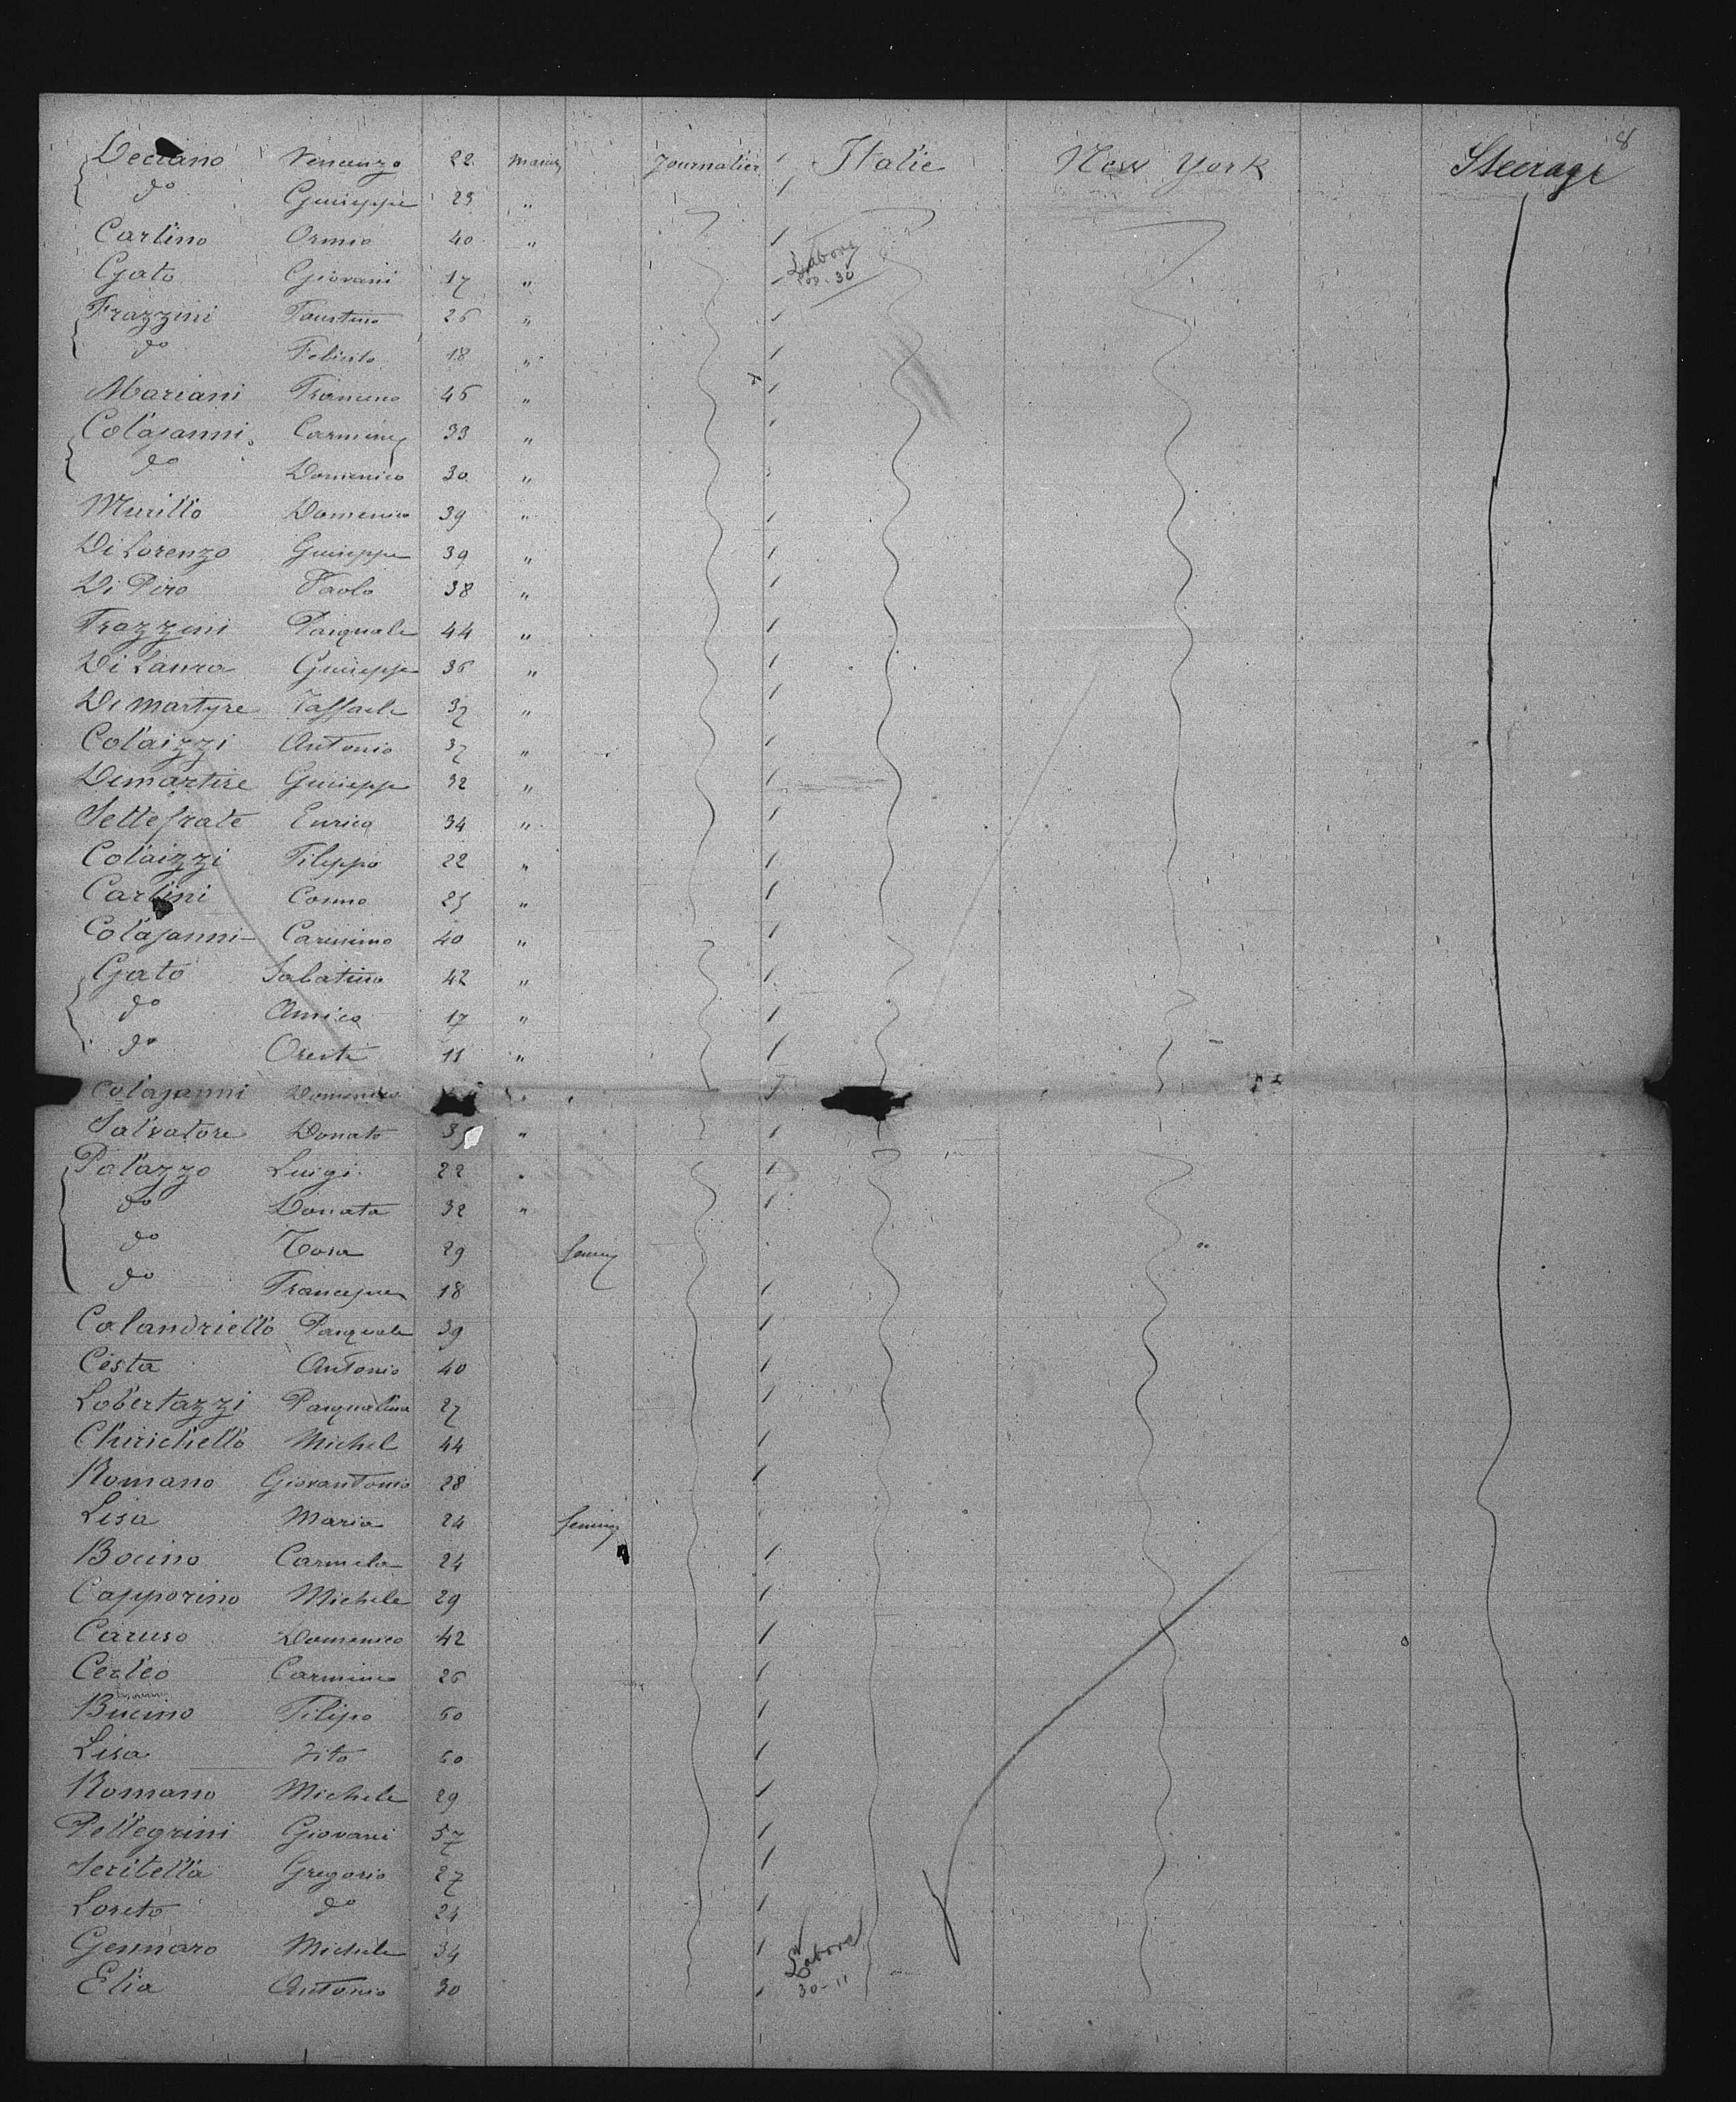 8
Deciano Vincenzo 22 masculin Journalier Italie New York Steerage
do Guiseppe 23 "
Carlino Ormio 40 "
Gato Giovani 17 " Labore
Frazzini Faustino 26 "
do Feliceto 18 "
Mariani Francesco 46 "
Colajanni Carmine 33 "
do Domenico 30 "
Murillo Domenico 39 "
Di Lorenzo Guiseppe 39 "
Di Piro Paolo 38 "
Frazzini Pasquale 44 "
Di Laura Guiseppe 36 "
De Martyre Raffaele 37 "
Colaizzi Antonio 37 "
Dimartire Guiseppe 32 "
Settefrate Enrico 34 "
Colaizzi Filippo 22 "
Carlini Cosmo 25 "
Colajanni Carmino 40 "
Gato Sabatino 42 "
do Amico 17 "
do Oreste 11 "
Colajanni Domenico "
Salvatore Donato 35 "
Palazzo Luigi 22 "
do Donata 32 "
do Rosa 29
do 18
Calandriello Pasquale 39
Cesta Antonio 40
Lobertazzi Pasqualina 27
Chirichello Michel 44
Romano Giovantonio 28
Lisa Maria 24
Bocino Carmela 24
Capporino Michele 29
Caruso Domenico 42
Cerleo Carmine 26
Bucino Filipo 60
Lisa Vito 60
Romano Michele 29
Pellegrini Giovani 57
Seritella Gregorio 27
Loreto do 24
Gennaro Michele 34 Labore
Elia Antonio 30 30-11